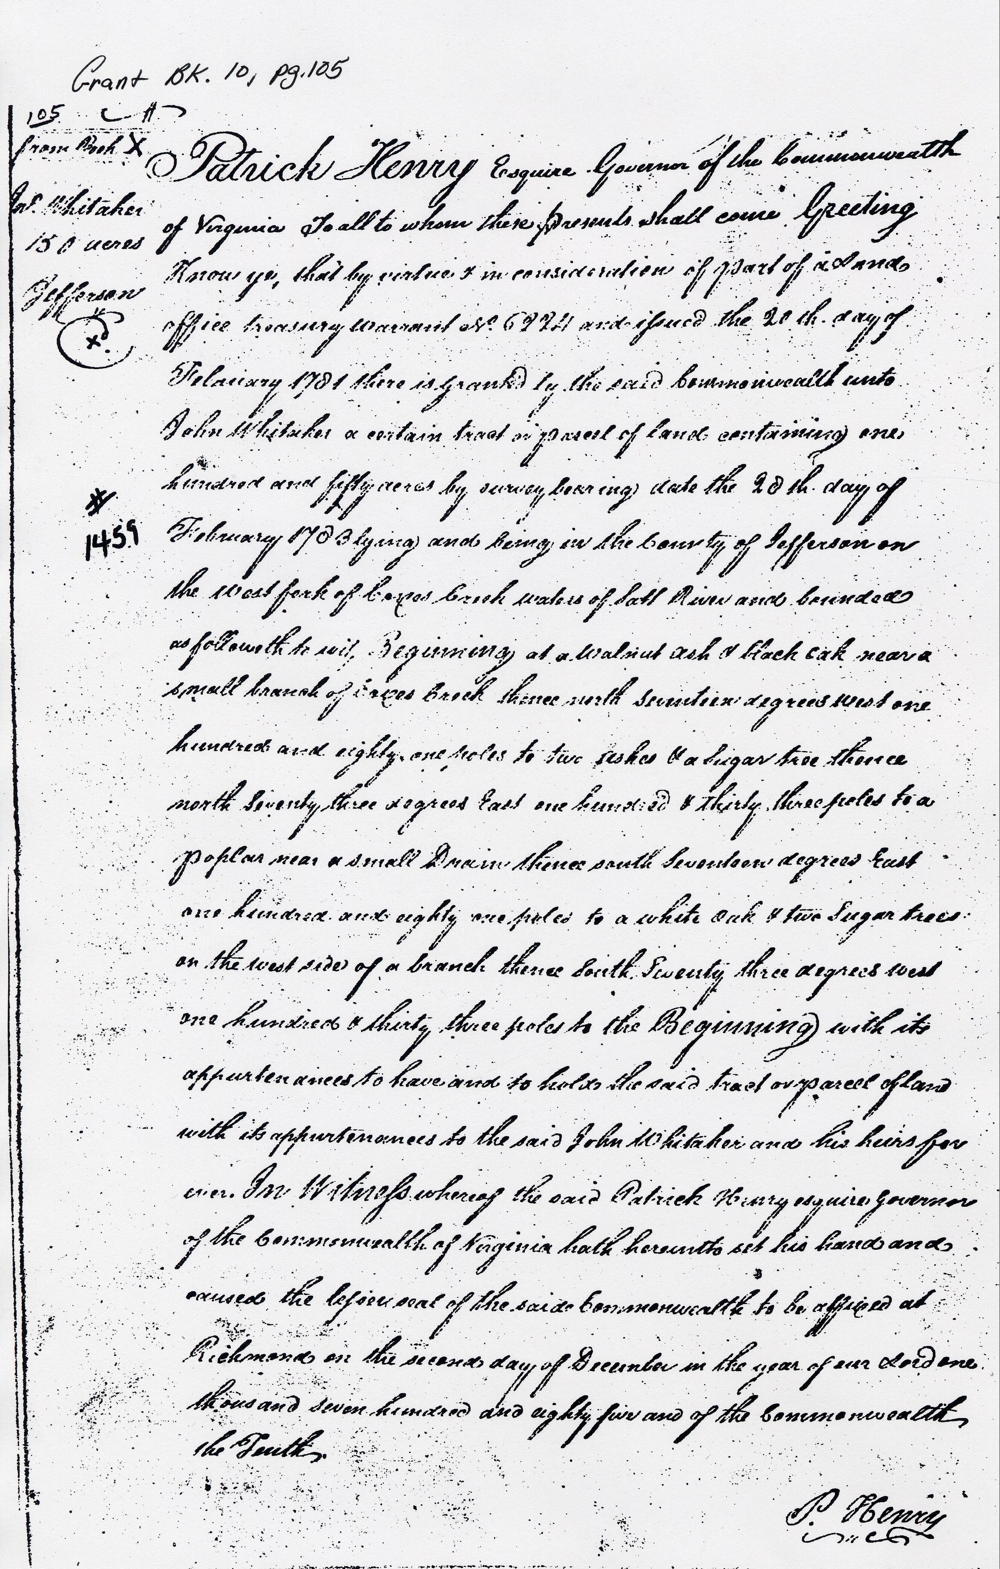 Grant BK. 10, pg. 105
105
from Book X
Jno. Whitaker
150 acres
Jefferson
Xd.
#
1459
Patrick Henry Esquire Governor of the Commonwealth
of Virginia To all to whom these presents shall come Greeting
Know ye, that by virtue & in consideration of part of a Land
office treasury warrant No. 6224 and issued the 20th. day of
February 1781 there is granted by the said Commonwealth unto
John Whitaker a certain tract or parcel of land containing one
hundred and fifty acres by survey bearing date the 28th. day of
February 1783 lying and being in the County of Jefferson on
the West fork of Coxes Creek waters of Salt River and bounded
as followeth to wit, Beginning at a Walnut ash & black oak near a
small branch of Coxes Creek thence north Seventeen degrees West one
hundred and eighty one poles to two ashes & a Sugar tree thence
north Seventy three degrees East one hundred & thirty three poles to a
poplar near a small Drain thence south Seventeen degrees East
one hundred and eighty one poles to a white Oak & two Sugar trees
on the west side of a branch thence South Seventy three degrees west
one hundred & thirty three poles to the Beginning with its
appurtenances to have and to hold the said tract or parcel of land
with its appurtenances to the said John Whitaker and his heirs for
ever. In Witness whereof the said Patrick Henry esquire Governor
of the Commonwealth of Virginia hath hereunto set his hand and
caused the lesser seal of the said Commonwealth to be affixed at
Richmond on the second day of December in the year of our Lord one
thousand seven hundred and eighty five and of the Commonwealth
the Tenth.
P. Henry